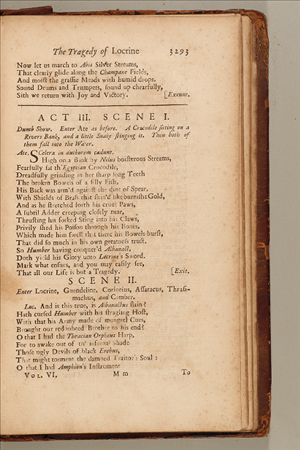 The Tragedy of Locrine 3293
Now let us march to Abis Silver Streams,
That clearly glide along the Champane Fields,
And moist the grassie Meads with humid drops.
Sound Drums and Trumpets, sound up chearfully,
Sith we return with Joy and Victory. [Exeunt.
ACT III. SCENE I.
Dumb Show. Enter Ate as before. A Crocodile sitting on a
Rivers Bank, and a little Snake stinging it. Then both of
them fall into the Water.
Ate. Scelera in authorem cadunt.
High on a Bank by Nilus boisterous Streams,
Fearfully sat th' Egyptian Crocodile,
Dreadfully grinding in her sharp long Teeth
The broken Bowels of a silly Fish,
His Back was arm'd against the dint of Spear,
With Shields of Brass that shin'd like burnisht Gold,
And as he stretched forth his cruel Paws,
A subtil Adder creeping closely near,
Thrusting his forked Sting into his Claws,
Privily shed his Poison through his Bones,
Which made him swell that there his Bowels burst,
That did so much in his own greatness trust.
So Humber having conquer'd Albanact,
Doth yield his Glory unto Locrine's Sword.
Mark what ensues, and you may easily see,
That all our Life is but a Tragedy. [Exit.
SCENE II.
Enter Locrine, Guendoline, Corineius, Assaracus, Thrasi-
machus, and Camber.
Loc. And is this true, is Albanactus slain?
Hath cursed Humber with his stragling Host,
With that his Army made of mungrel Curs,
Brought our redoubted Brother to his end?
O that I had the Thracian Orpheus Harp,
For to awake out of th' infernal shade
Those ugly Devils of black Erebus,
That might torment the damned Traitor's Soul:
O that I had Amphion's Instrument
VOL. VI. M m To